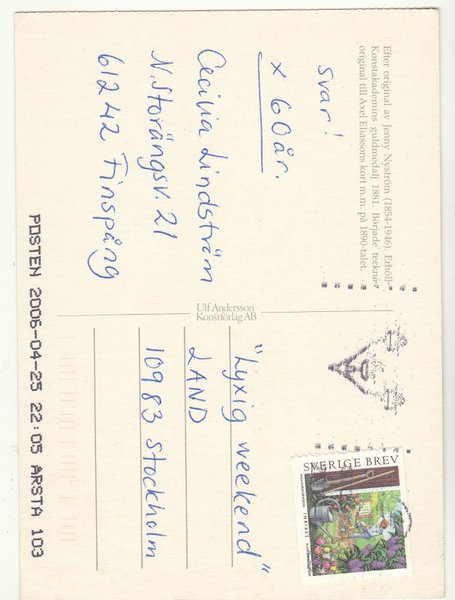 Efter original av Jenny Nyström (1854-1946). Erhöll
Konstakademins guldmedalj 1881. Började teckna
original till Axel Eliassons kort m.m. på 1890-talet.
svar!
x 60 år.
Cecilia Lindström
N. Storängsv. 21
612 42 Finspång
Ulf Andersson
Konstförlag AB
SVERIGE BREV
"Lyxig weekend"
LAND
109 83 Stockholm
POSTEN 2006-04-25 22:05 ARSTA 103